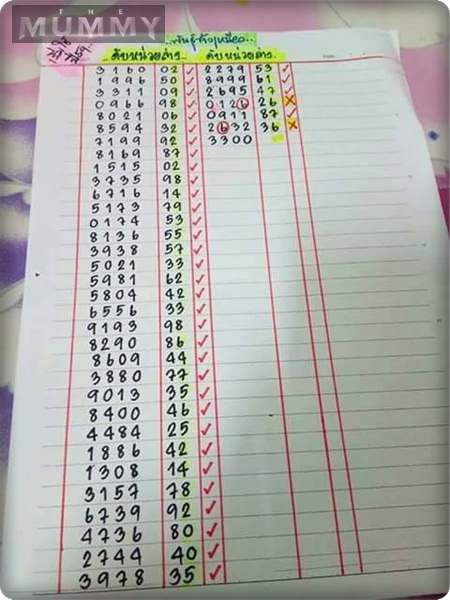 THE
MUMMY
ดับหน่วยล่าง. ดับหน่วยล่าง.
3160 02 ✓ 2279 53 ✓
8996 50 ✓ 8999 61 ✓
3311 09 ✓ 2695 47 ✓
0966 98 ✓ 0126 26 ×
8021 06 ✓ 0911 87 ✓
8594 32 ✓ 2632 36 ×
7199 92 ✓ 3300
8169 87 ✓
1515 02 ✓
3735 98 ✓
6716 14 ✓
5173 79 ✓
0174 53 ✓
8136 55 ✓
3938 57 ✓
5021 33 ✓
5981 62 ✓
5804 42 ✓
6556 33 ✓
9193 98 ✓
8290 86 ✓
8609 44 ✓
3880 77 ✓
9013 35 ✓
8400 46 ✓
4484 25 ✓
1886 42 ✓
1308 14 ✓
3157 78 ✓
6739 92 ✓
4736 80 ✓
2744 40 ✓
3978 35 ✓